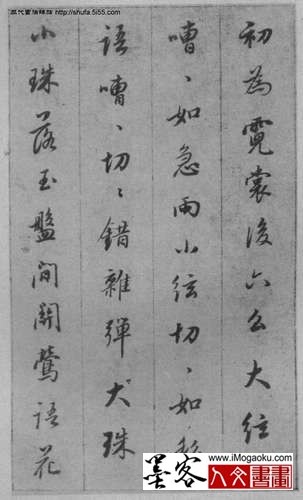 http://shufa.5i55.com
初為霓裳後六么大弦
嘈、如急雨小弦切、如私
語嘈、切、錯雜彈大珠
小珠落玉盤間關鶯語花
墨客
www.iMogaoku.com
人文書畫